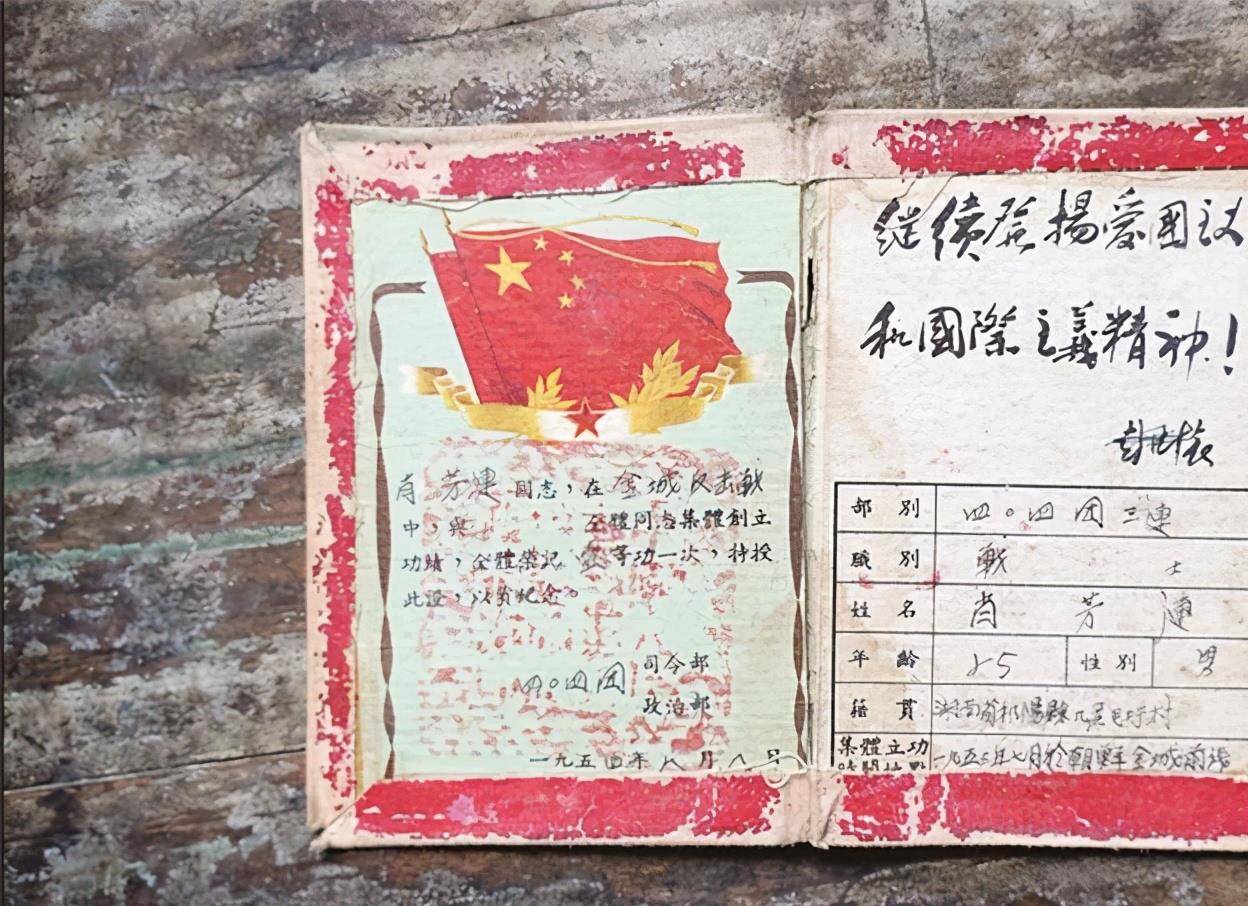 肖芳連同志，在金城反击戰
中，與 全體同志集體創立
功績，全體榮記 等功一次，特授
此證，以資紀念。
四〇四团 司令部
政治部
一九五四年八月八号
继续發揚愛国议
和國際主義精神！
彭德怀
部別 四〇四团三連
職別 戰士
姓名 肖芳連
年齡 25 性別 男
籍貫 湖南省 村
集體立功 一九五三年七月於朝鮮金城前线